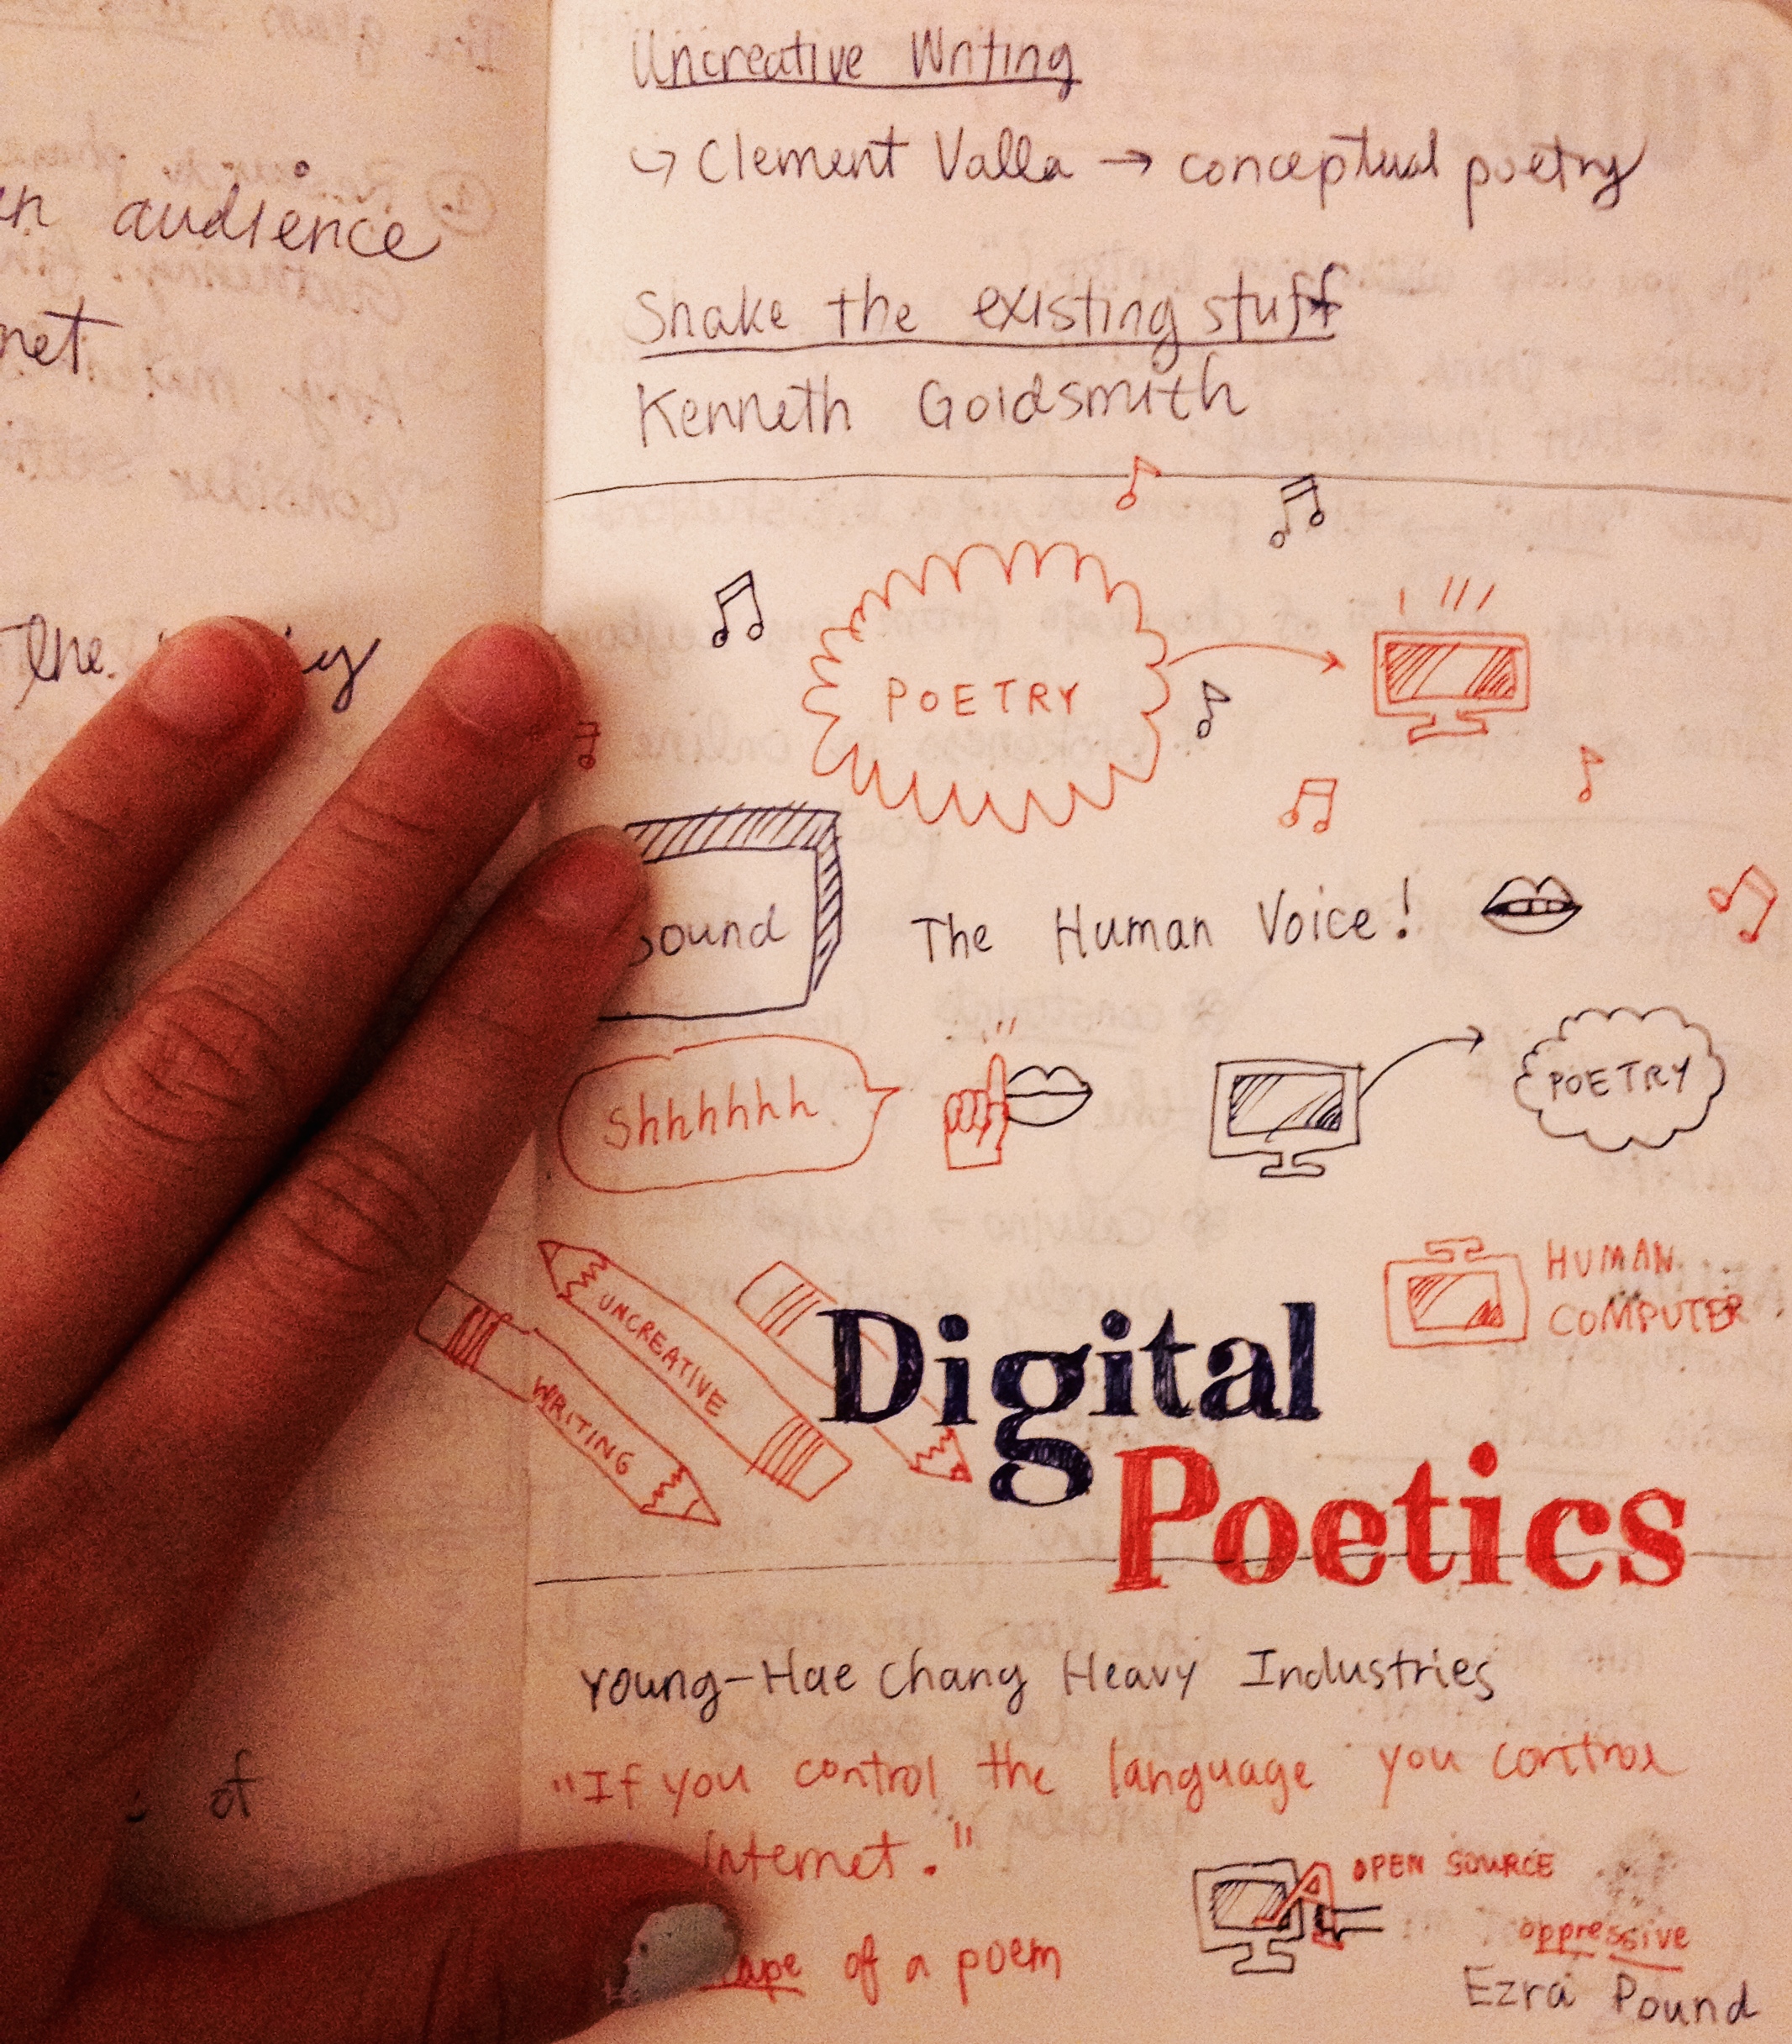 audience
the
of
Uncreative Writing
↪ Clement Valla → conceptual poetry
Shake the existing stuff
Kenneth Goldsmith
POETRY
Sound
The Human Voice!
Shhhhhhh
POETRY
HUMAN
COMPUTER
UNCREATIVE
WRITING
Digital
Poetics
Young-Hae Chang Heavy Industries
"If you control the language you control
internet."
of a poem
OPEN SOURCE
oppressive
Ezra Pound